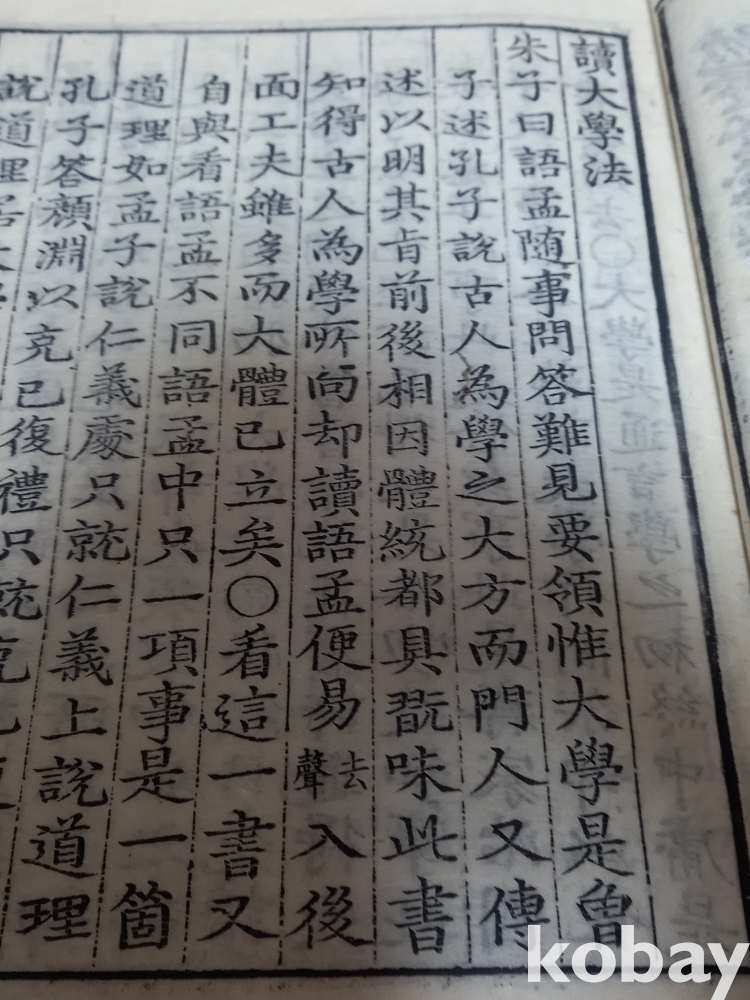 讀大學法
朱子曰語孟隨事問答難見要領惟大學是曾
子述孔子說古人為學之大方而門人又傳
述以明其旨前後相因體統都具翫味此書
知得古人為學所向却讀語孟便易去聲入後
面工夫雖多而大體已立矣○看這一書又
自與看語孟不同語孟中只一項事是一箇
道理如孟子說仁義處只就仁義上說道理
孔子答顏淵以克已復禮只就克
說道理若大
kobay